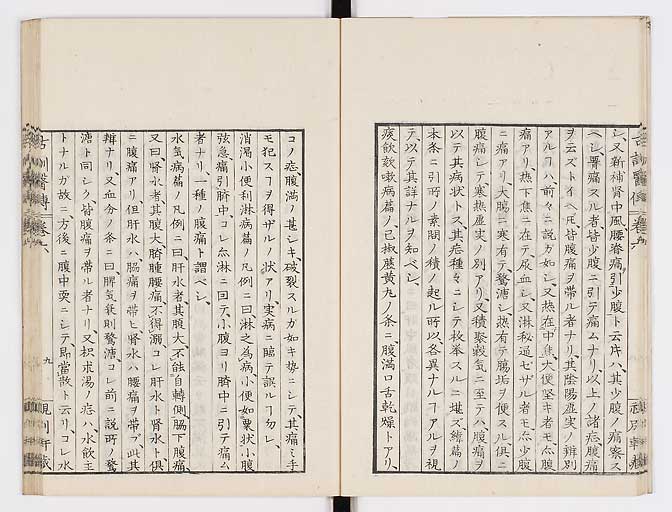 シ、又新補腎中風、腰脊痛引少腹ト云片ハ、其少腹ノ痛察ス
ベシ、腎痛スル者、皆少腹ニ引テ痛ムナリ、以上ノ諸症、腹痛
ヲ云ズトイヘ𪜈、皆腹痛ヲ帯ル者ナリ、其陰陽虚実ノ辨別
アルコハ、前々ニ説カ如シ、又熱在中焦、大便堅キ者モ亦腹
痛アリ、熱下焦ニ在テ尿血シ、又淋秘通セザル者モ亦少腹
ニ痛アリ、大腸ニ寒有テ鶩溏シ、熱有テ腸垢ヲ便スル、俱ニ
腹痛シテ寒熱虚実ノ別アリ、又積聚穀気ニ至テハ、腹痛ヲ
以テ其病状トス、其症種々ニシテ枚挙スルニ堪ズ、
本条ニ引所ノ素問ノ積ノ起ル所以、各異ナルコアルヲ視
テ、以テ其詳ナルヲ知ベシ、
痰飲欬嗽病篇ノ、己椒藶黄丸ノ条ニ、腹満口舌乾燥トアリ、
コノ症腹満ノ甚シキ、破裂スルガ如キ勢ニシテ、其痛ミ手
モ犯スコヲ得ザルノ状アリ、実病ニ臨テ誤ルコ勿レ、
消渇小便利淋病篇ノ凡例ニ曰、淋之為病、小便如粟状、小腹
弦急、痛引臍中、コレ亦淋ニ因テ、小腹ヨリ臍中ニ引テ痛ム
者ナリ、一種ノ腹痛ト謂ベシ、
水気病篇ノ凡例ニ曰、肝水者、其腹大、不能自轉側、脇下腹痛、
又曰、腎水者、其腹大、臍腫腰痛、不得溺、コレ肝水ト腎水ト俱
ニ腹痛アリ、但肝水ハ脇痛ヲ帯ヒ、腎水ハ腰痛ヲ帯ブ、此其
辨ナリ、又血分ノ条ニ曰、脾気衰則鶩溏、コレ前ニ説所ノ鶩
溏ト同シク、皆腹痛ヲ帯ル者ナリ、又枳朮湯ノ症ハ、水飲主
トナルガ故ニ、方後ニ腹中耎ニシテ、即當散ト云リ、コレ水
古訓醫傳
巻六
九